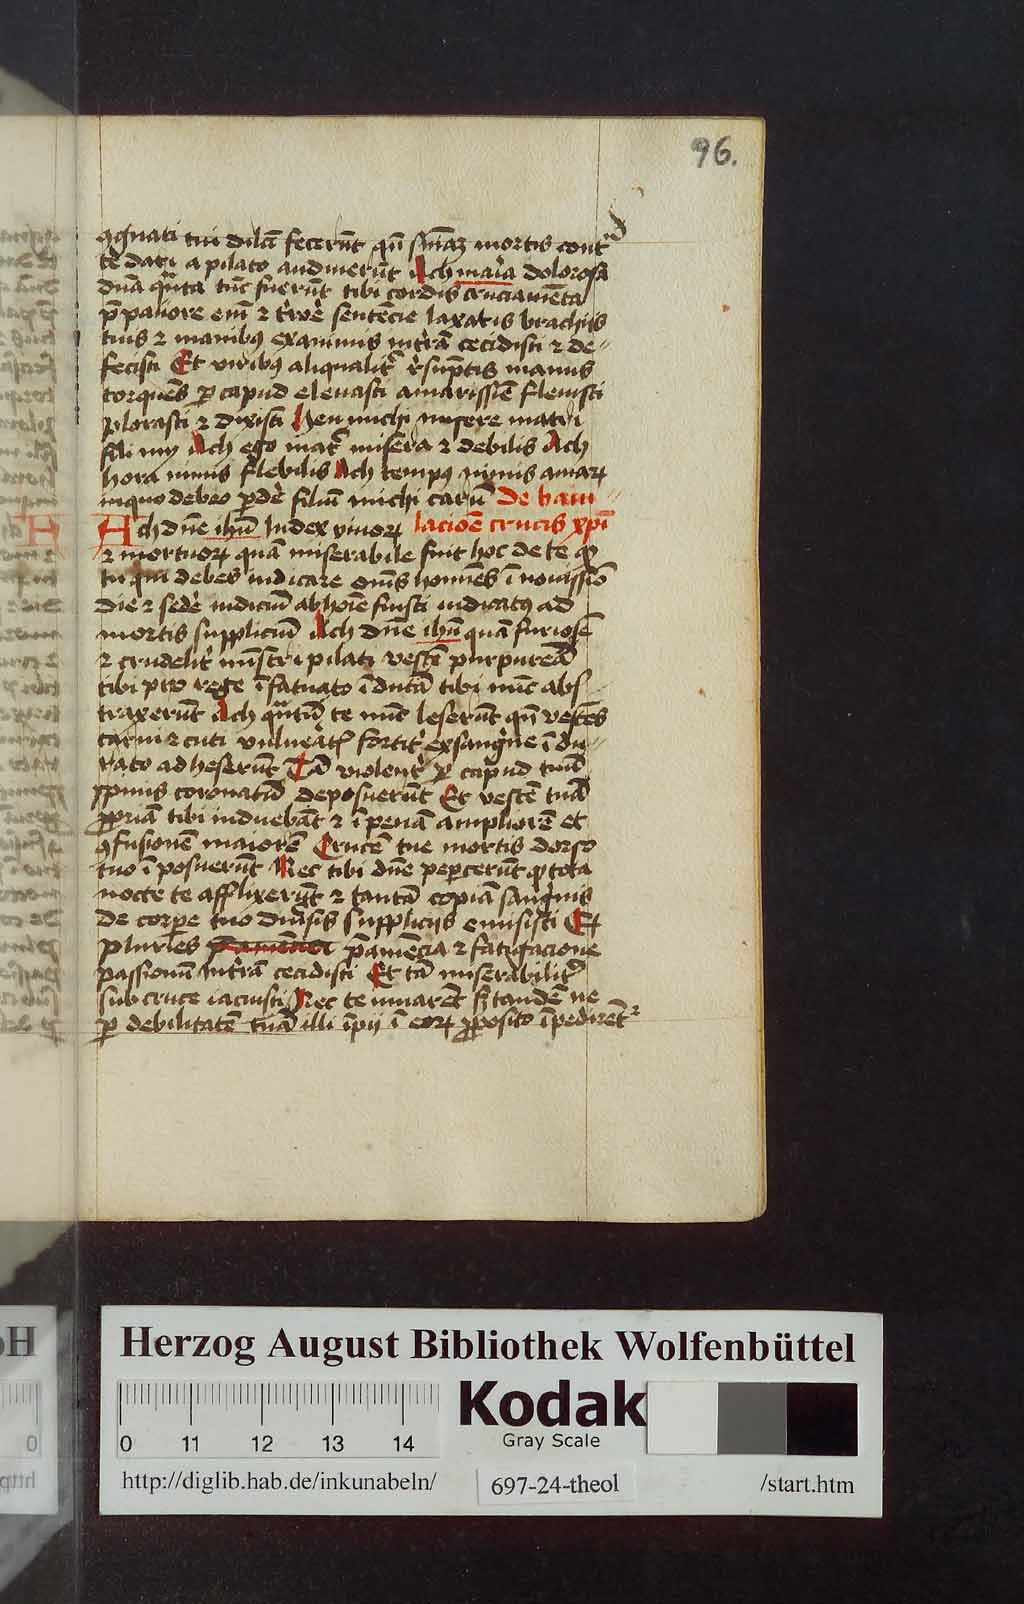 96.
ꝯgnati tui dilc̄i fecerūt qn̄ sn̄iaꝫ mortis cont
te dari a pilato audiuerūt Ach maria dolorosa
dn̄a qu̾ta tūc fuerūt tibi cordis cruciamēta
p̄ pauore em̄ ⁊ t̾roe sentēcie laxatis brachijs
tuis ⁊ manibꝰ exanimis in t̾rā cecidisti ⁊ de-
fecisti Et viribꝰ aliqualit̾ r̾sūptis manus
torquēs ꝑ capud eleuasti amarissīe fleuisti
plorasti ⁊ dixisti Heu michi misere matri
fili mi Ach ego mat̾ misera ⁊ debilis Ach
hora nimis flebilis Ach tempꝰ nimis amaꝝ
in quo debeo ꝑdē filiū michi carū De baiu-
Ach dn̄e ihū Iudex viuoꝝ lacioē crucis xp̄i
⁊ mortuoꝝ quā miserabile fuit hoc de te ꝙ
tu qui debes iudicare om̄s homīes ī nouissīo
die ⁊ sedē iudiciū ab hoīe fuisti iudicatꝰ ad
mortis suppliciū Ach dn̄e ihū quā furiose
⁊ crudelit̾ mīstri pilati vestē purpureā
tibi pro rege īfatuato īdutā tibi nūc abs-
traxerūt Ach qu̾tū te nūc leserūt qn̄ vestes
carni ⁊ cuti vuln̾ate fortit̾ ex sangu̾ne īdu-
rato adheserūt Tā violent̾ ꝑ capud tuū
spinis coronatū deposuerūt Et vestē tuā
ꝓpriā tibi induebāt ⁊ ī penā ampliorē et
ꝯfusionē maiorē Crucē tue mortis dorso
tuo īposuerūt Nec tibi dn̄e peꝑcerūt ꝙ tota
nocte te afflixerūt ⁊ tantā copiā sangu̾nis
de corꝑe tuo diu̾sis supplicijs emisisti Et
pluries p̄ amēcia ⁊ fatigacione
passionū in t̾rā cecidisti Et tā miserabilit̾
sub cruce iacuisti Nec te iuuarēt sꝫ tandē ne
ꝑ debilitatē tuā illi īpij ī eoꝝ ꝓposito īpedirēt̾
Herzog August Bibliothek Wolfenbüttel
Kodak
Gray Scale
0 11 12 13 14
http://diglib.hab.de/inkunabeln/ 697-24-theol /start.htm